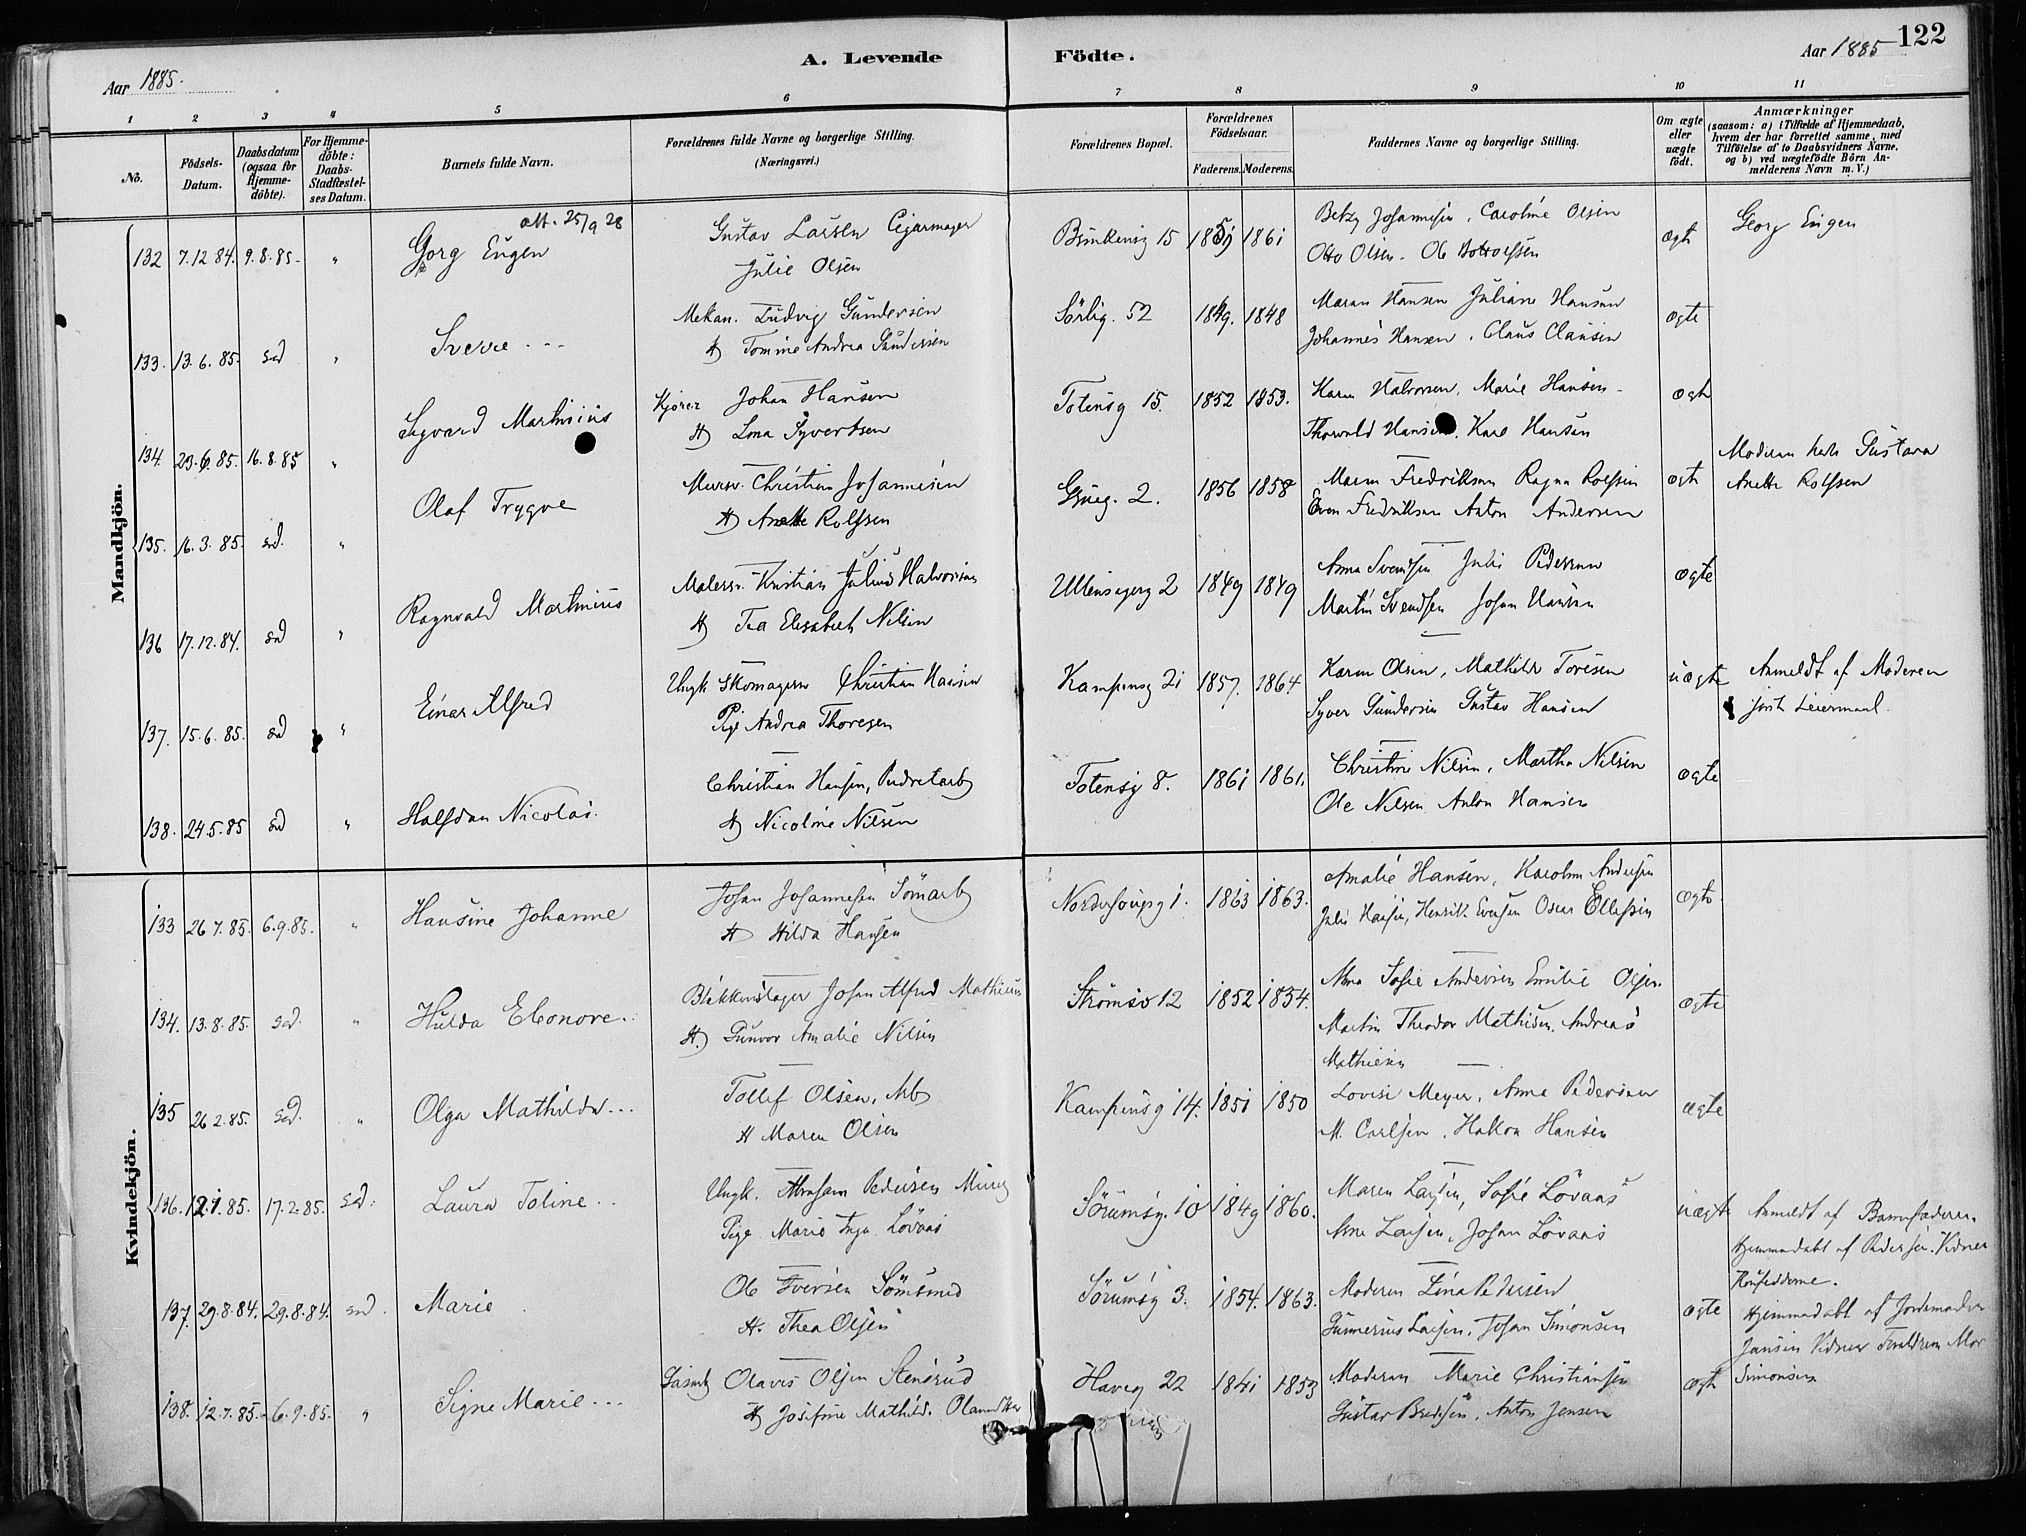 122
A. Levende Födte.
Aar 1885.
Aar 1885
1 2 3 4 5 6 7 8 9 10 11
No.
Födsels-Datum.
Daabsdatum (ogsaa for Hjemme-döbte).
For Hjemme-döbte: Daabs-Stadfæstel-ses Datum.
Barnets fulde Navn.
Forældrenes fulde Navne og borgerlige Stilling.
(Næringsvei.)
Forældrenes Bopæl.
Forældrenes Födselsaar.
Faderens. Moderens.
Faddernes Navne og borgerlige Stilling.
Om ægte eller uægte födt.
Anmærkninger
(saasom: a) i Tilfælde af Hjemmedaab,
hvem der har forrettet samme, med
Tilföielse af to Daabsvidners Navne,
og b) ved uægtefödte Börn An-
melderens Navn m. V.)
Mandkjön.
att. 25/9 28
132 7.12 84. 9.8.85. " Georg Eugen
Gustav Larsen Cigarmager
Julie Olsen
Brinkensg 15 1859 1861
Betzy Johannesen, Caroline Olsen
Otto Olsen. Ole
ægte
Georg Eugen
133. 13.6.85. sad " Sverre
Mekan. Ludvig Gundersen
H Tomine Andrea Gundersen
Sörlig. 52 1849. 1848
Maren Hansen Juliane Hansen
Johannes Hansen, Claus Clausen
ægte
134. 23.6.85. 16.8.85 " Sigvard Martinius
Kjörer Johan Hansen
H Lina Syvertsen
Totensg 15. 1852 1853.
Karen Halvorsen, Marie Hansen
Thorvald Hansen, Karl Hansen
ægte
135. 16.3.85. sad. " Olaf Trygve
Murer. Christian Johannesen
H Anette Rolfsen
Grueg. 2. 1856 1858
Maren Fredriksen Ragna Rolfsen
Even Fredriksen Anton Andersen
ægte
Moderen heder Gustava
Anette Rolfsen
136 17.12.84. sad " Ragnvald Martinius
Malersv. Kristian Julius Halvorsen
H Tea Elisabeth Nilsen
Ullensagerg 2 1849 1849
Anna Svendsen Julie Pedersen
Martin Svendsen Johan Hansen
ægte
137. 15.6.85. sad " Einar Alfred
Ungk Skomagersv Christian Hansen
Pige Andrea Thoresen
Kampensg 21 1857. 1864
Karen Olsen, Mathilde Toresen
Syver Gundersen Gustav Hansen
uægte
Anmeldt af Moderen
förste Leiermaal.
138. 24.5.85 sad " Halfdan Nicolai.
Christian Hansen, Pudretarb
H Nicoline Nilsen
Totensg 8. 1861 1861.
Christine Nilsen, Martha Nilsen
Ole Nilsen Anton Hansen
ægte
Kvindekjön.
133 26.7.85. 6.9.85. " Hansine Johanne
Johan Johannesen Tömarb
H Hilda Hansen
1. 1863 1863.
Amalie Hansen, Karoline Andersen
Julie Hansen, Henrik Evensen Oscar Ellefsen
ægte.
134. 13.8.85. sad. " Hulda Eleonore.
Blikkenslager Johan Alfred Mathiesen
H. Gunvor Amalie Nilsen
Strömsv 12 1852 1854.
Anna Sofie Andersen Emilie Olsen.
Martin Theodor Mathisen, Andreas
Mathiesen
ægte
135 26.2.85. sad. " Olga Mathilde
Tollef Olsen, Arb
H Maren Olsen
Kampensg 14. 1851 1850
Lovise Meyer, Anna Pedersen
M. Carlsen, Hakon Hansen
ægte
136. 12.1.85. 17.2.85. sad. Laura Toline
Ungk. Abraham Pedersen Murer
Pige Marie Inga Lövaas
Sörumsg. 10 1849 1860.
Maren Larsen, Sofie Lövaas
Arne Larsen, Johan Lövaas
uægte
Anmeldt af Barnefaderen.
Hjemmedöbt af Pedersen. Vidner
137. 29.8.84. 29.8.84. sad. Marie
Ole Iversen Tömsmed
H. Thea Olsen
Sörumsg 3. 1854. 1863.
Moderen Lina Pedersen
Gunnerius Larsen, Johan Simonsen
ægte
Hjemmedöbt af Jordemoder
Jansen Vidner Forældrene Mor
Simonsen
138. 12.7.85. 6.9.85. " Signe Marie
Olaves Olsen Stensrud
H Josefine Mathild.
Haveg 22 1841 1853
Moderen Marie Christiansen
Gustav Bredesen, Anton Jensen
ægte